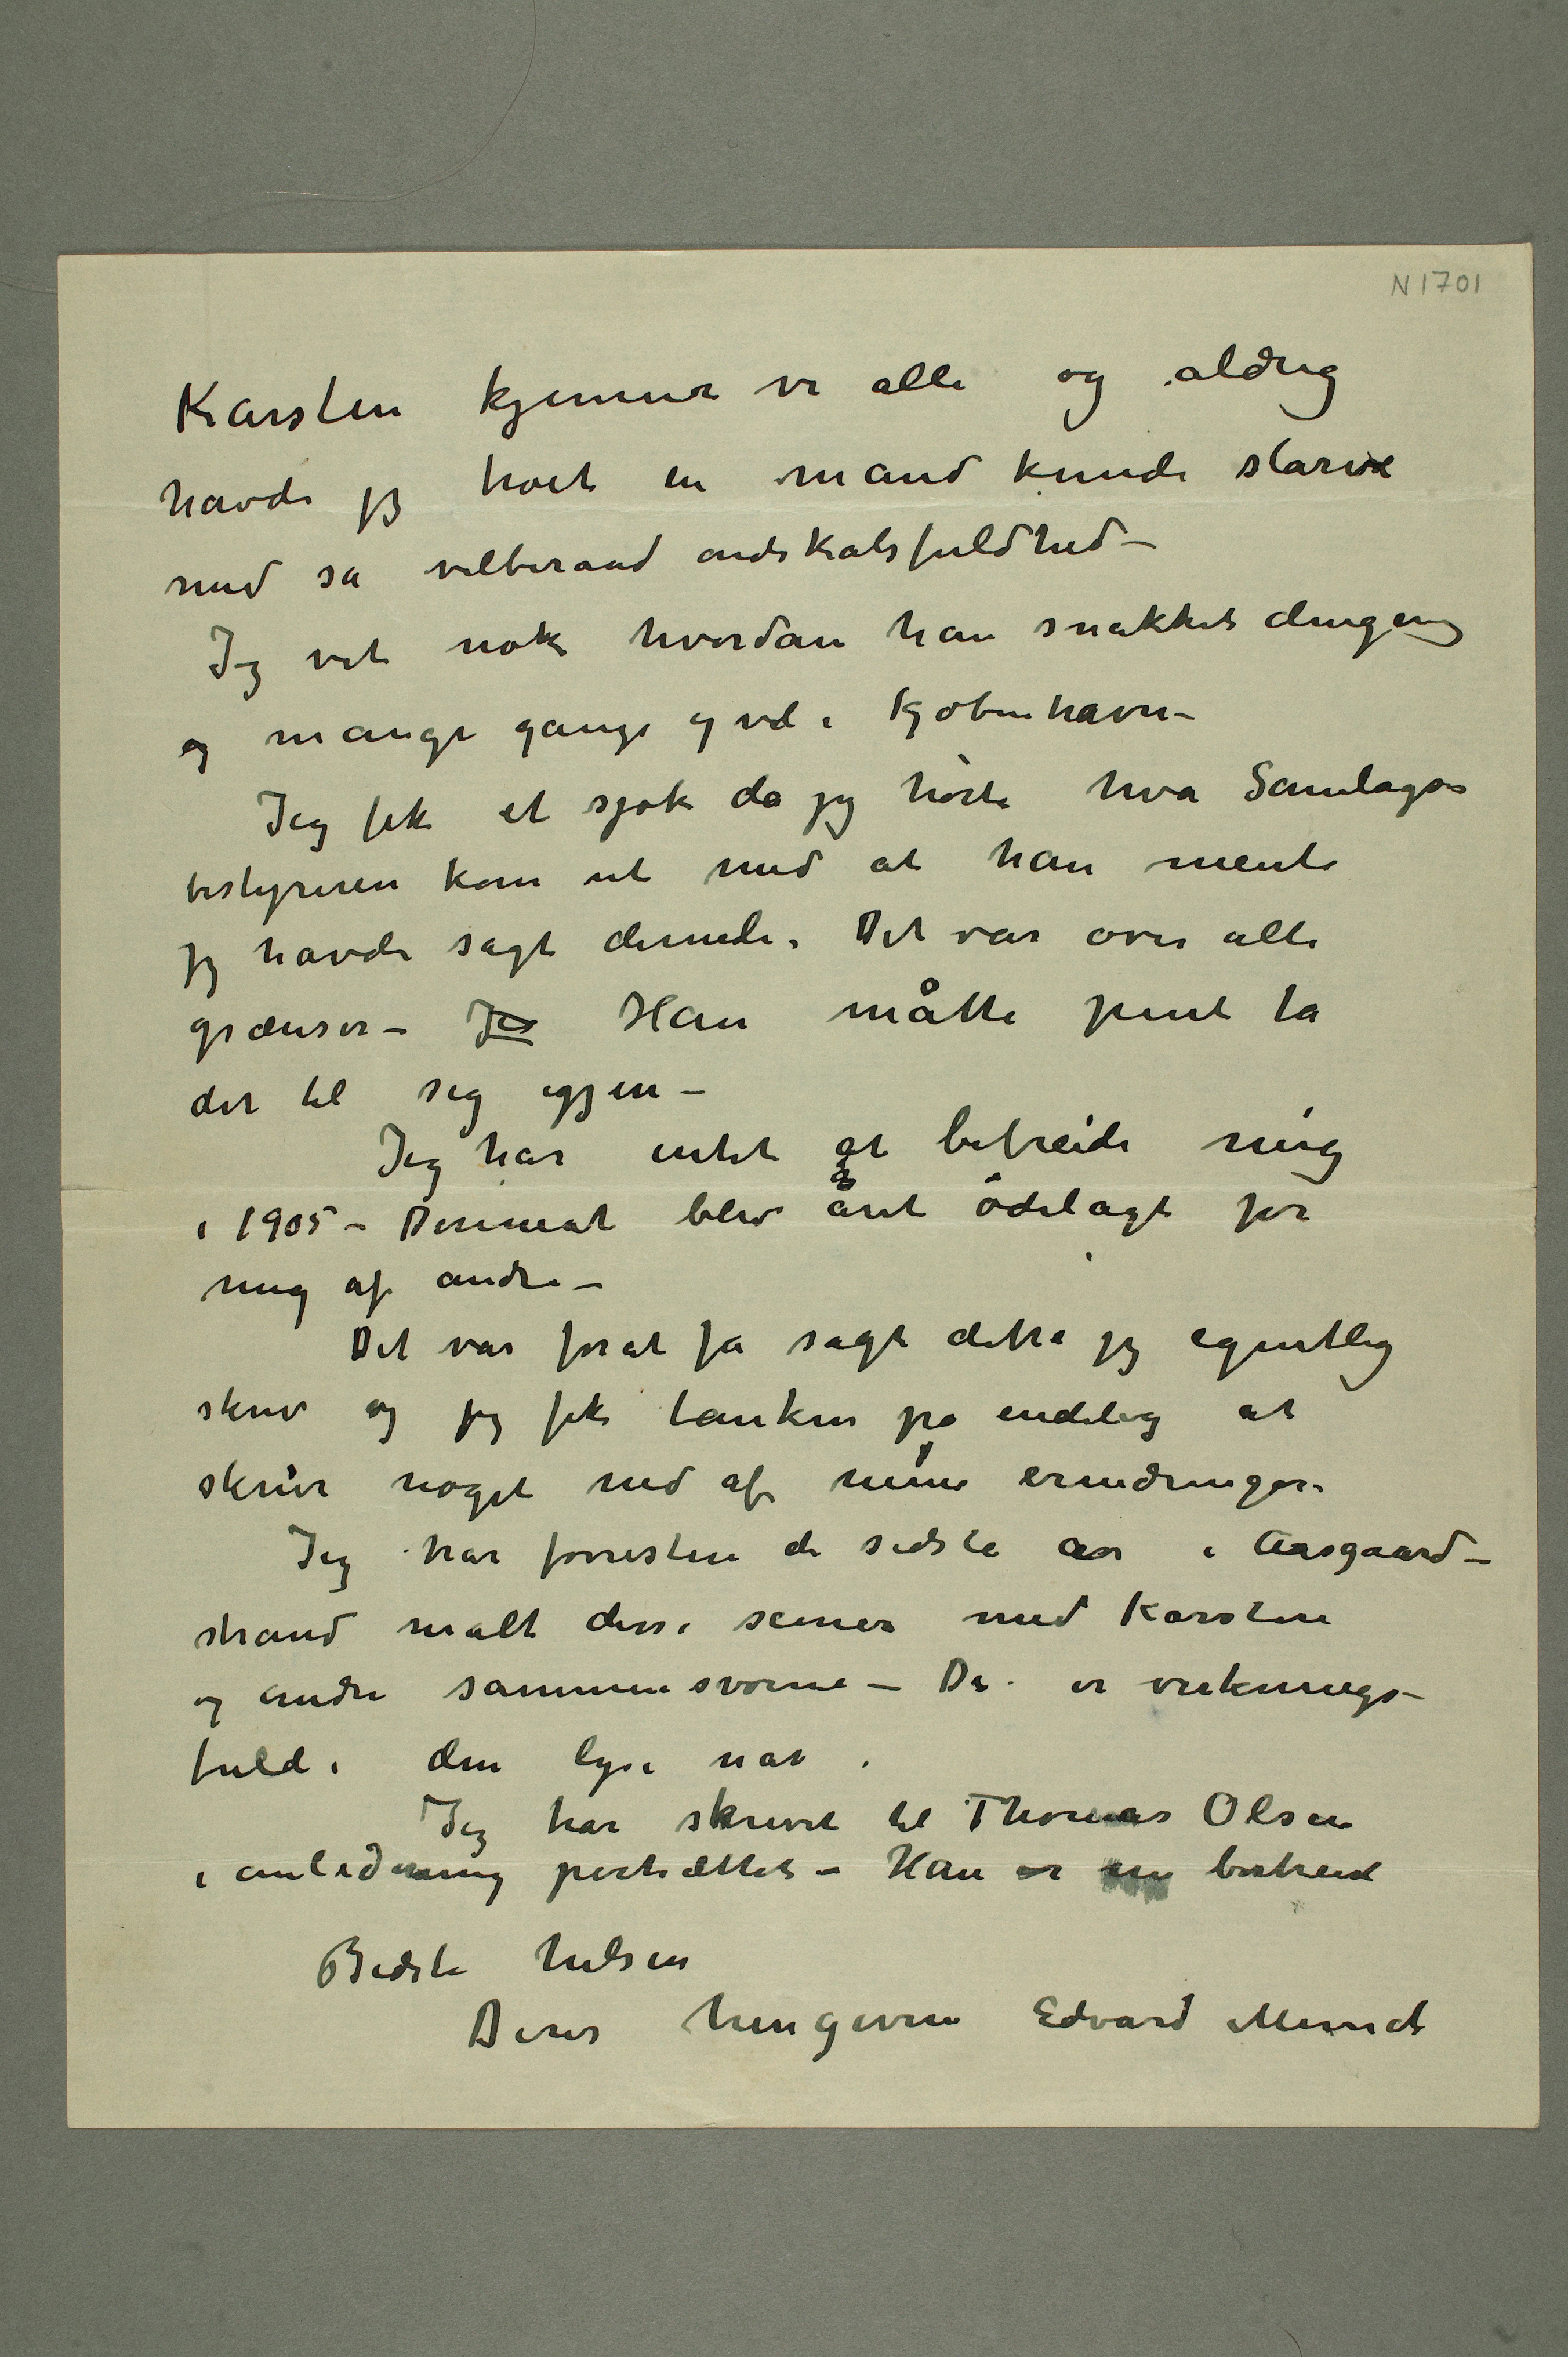 N 1701
Karsten kjenner vi alle og aldrig
havde jeg troet en mand kunde starve
med så velberaad ondskabsfuldhed –
Jeg vet nok hvordan han snakket dengang
og mange gange og ved i Kjøbenhavn –
Jeg fik et sjok da jeg hørte hva Samlags-
bestyreren kom ut med at han mente
jeg havde sagt dernede. Det var over alle
grænser – Jeg Han måtte pent ta
det til seg igjen –
Jeg har intet at bebreide mig
i 1905 – Derimot blev året ødelagt for
mig af andre –
Det var forat få sagt dette jeg egentlig
skrev og jeg fik tanken på endelig at
skrive noget ned af mine erindringer.
Jeg har forresten de sidste aar i Aasgaard-
strand malt disse scener med Karsten
og andre sammensvorne – De er virknings-
fulde i den lyse nat.
Jeg har skrevet til Thomas Olsen
i anledning portrættet – Han er en
Bedste hilsen
Deres hengivne Edvard Munch